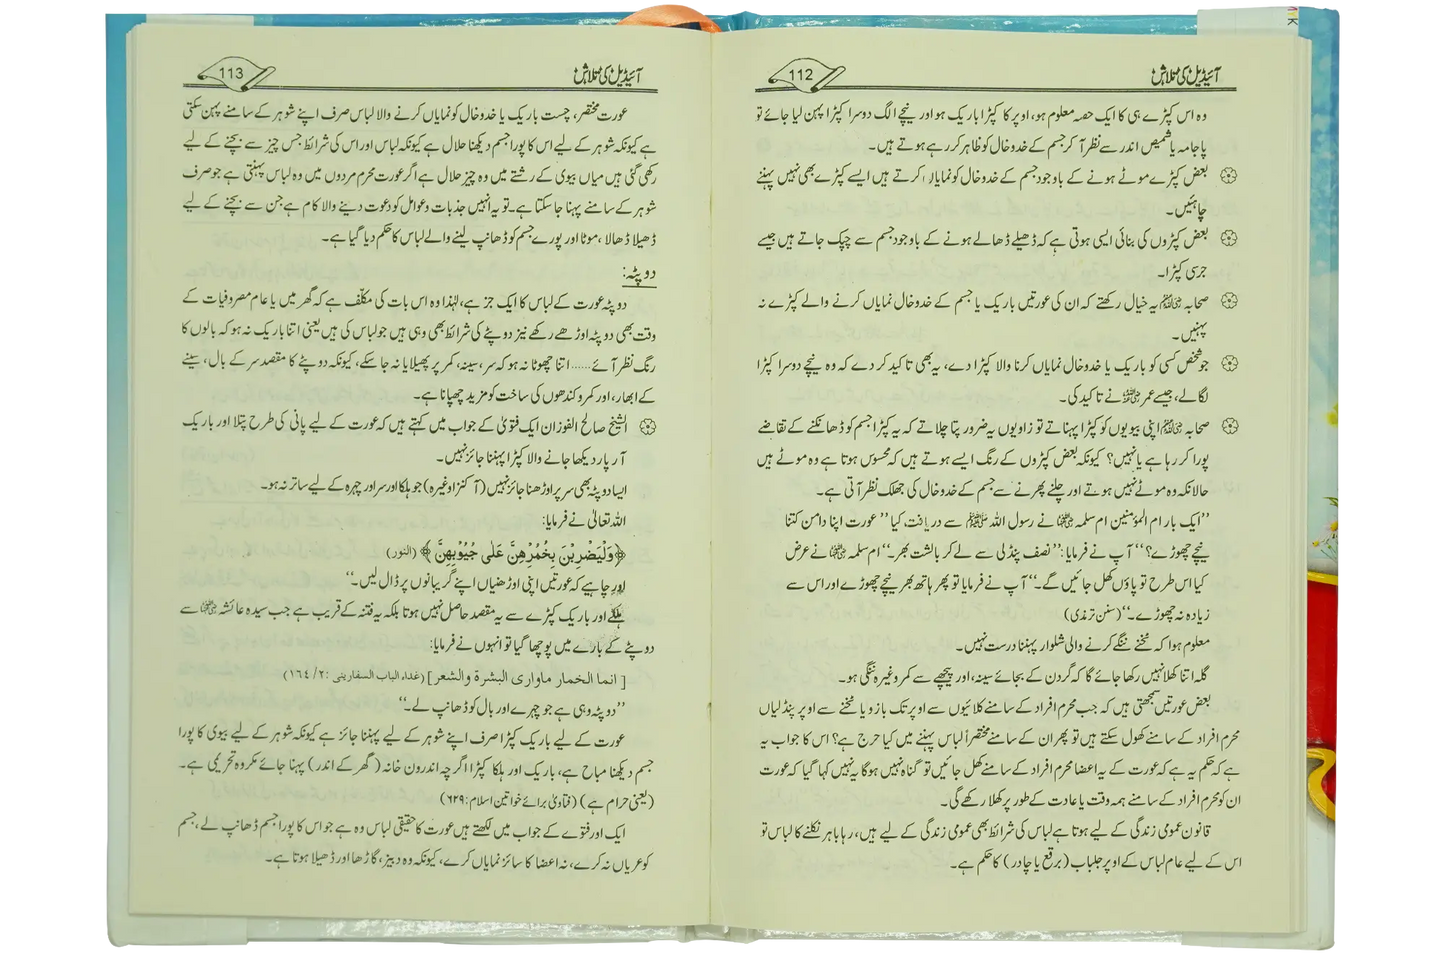 آئیڈیل کی تلاش
112
وہ اس کپڑے ہی کا ایک حصہ معلوم ہو، اوپر کا کپڑا باریک ہو اور نیچے الگ دوسرا کپڑا پہن لیا جائے تو
پاجامہ یا شمیض اندر سے نظر آ کر جسم کے خدوخال کو ظاہر کر رہے ہوتے ہیں۔
بعض کپڑے موٹے ہونے کے باوجود جسم کے خدوخال کو نمایاں کرتے ہیں ایسے کپڑے بھی نہیں پہننے
چاہئیں۔
بعض کپڑوں کی بنائی ایسی ہوتی ہے کہ ڈھیلے ڈھالے ہونے کے باوجود جسم سے چپک جاتے ہیں جیسے
جرسی کپڑا۔
صحابہ یہ خیال رکھتے کہ ان کی عورتیں باریک یا جسم کے خدوخال نمایاں کرنے والے کپڑے نہ
پہنیں۔
جو شخص کسی کو باریک یا خدوخال نمایاں کرنا والا کپڑا دے، یہ بھی تاکید کر دے کہ وہ نیچے دوسرا کپڑا
لگا لے، جیسے عمر نے تاکید کی۔
صحابہ اپنی بیویوں کو کپڑا پہناتے تو زاویوں یہ ضرور پتا چلاتے کہ یہ کپڑا جسم کو ڈھانکنے کے تقاضے
پورا کر رہا ہے یا نہیں؟ کیونکہ بعض کپڑوں کے رنگ ایسے ہوتے ہیں کہ محسوس ہوتا ہے وہ موٹے ہیں
حالانکہ وہ موٹے نہیں ہوتے اور چلنے پھرنے سے جسم کے خدوخال کی جھلک نظر آتی ہے۔
’’ایک بار ام المؤمنین ام سلمہ نے رسول اللہ ﷺ سے دریافت کیا ’’عورت اپنا دامن کتنا
نیچے چھوڑے؟‘‘ آپ نے فرمایا: ’’نصف پنڈلی سے لے کر بالشت بھر۔‘‘ ام سلمہ نے عرض
کیا اس طرح تو پاؤں کھل جائیں گے۔‘‘ آپ نے فرمایا تو پھر ہاتھ بھر نیچے چھوڑے اور اس سے
زیادہ نہ چھوڑے۔‘‘ (سنن ترمذی)
معلوم ہوا کہ ٹخنے ننگے کرنے والی شلوار پہننا درست نہیں۔
گلہ اتنا کھلا نہیں رکھا جائے گا کہ گردن کے بجائے سینہ، اور پیچھے سے کمر وغیرہ ننگی ہو۔
بعض عورتیں سمجھتی ہیں کہ جب محرم افراد کے سامنے کلائیوں سے اوپر تک بازو یا ٹخنے سے اوپر پنڈلیاں
محرم افراد کے سامنے کھول سکتے ہیں تو پھر ان کے سامنے مختصراً لباس پہننے میں کیا حرج ہے؟ اس کا جواب یہ
ہے کہ حکم یہ ہے کہ عورت کے یہ اعضا محرم افراد کے سامنے کھل جائیں تو گناہ نہیں ہوگا یہ نہیں کہا گیا کہ عورت
ان کو محرم افراد کے سامنے ہمہ وقت یا عادت کے طور پر کھلا رکھے گی۔
قانون عمومی زندگی کے لیے ہوتا ہے لباس کی شرائط بھی عمومی زندگی کے لیے ہیں، رہا باہر نکلنے کا لباس تو
اس کے لیے عام لباس کے اوپر جلباب (برقع یا چادر) کا حکم ہے۔
آئیڈیل کی تلاش
113
عورت مختصر، چست باریک یا خدوخال کو نمایاں کرنے والا لباس صرف اپنے شوہر کے سامنے پہن سکتی
ہے کیونکہ شوہر کے لیے اس کا پورا جسم دیکھنا حلال ہے کیونکہ لباس اور اس کی شرائط جس چیز سے بچنے کے لیے
رکھی گئی ہیں میاں بیوی کے رشتے میں وہ چیز حلال ہے اگر عورت محرم مردوں میں وہ لباس پہنتی ہے جو صرف
شوہر کے سامنے پہنا جا سکتا ہے۔ تو یہ انہیں جذبات و عوامل کو دعوت دینے والا کام ہے جن سے بچنے کے لیے
ڈھیلا ڈھالا، موٹا اور پورے جسم کو ڈھانپ لینے والے لباس کا حکم دیا گیا ہے۔
دوپٹہ:
دوپٹہ عورت کے لباس کا ایک جز ہے، لہٰذا وہ اس بات کی مکلف ہے کہ گھر میں یا عام مصروفیات کے
وقت بھی دوپٹہ اوڑھے رکھے نیز دوپٹے کی شرائط بھی وہی ہیں جو لباس کی ہیں یعنی اتنا باریک نہ ہو کہ بالوں کا
رنگ نظر آئے...... اتنا چھوٹا نہ ہو کہ سر، سینہ، کمر پر پھیلایا نہ جا سکے، کیونکہ دوپٹے کا مقصد سر کے بال، سینے
کے ابھار، اور کمر و کندھوں کی ساخت کو مزید چھپانا ہے۔
الشیخ صالح الفوزان ایک فتویٰ کے جواب میں کہتے ہیں کہ عورت کے لیے پانی کی طرح پتلا اور باریک
آر پار دیکھا جانے والا کپڑا پہننا جائز نہیں۔
ایسا دوپٹہ بھی سر پر اوڑھنا جائز نہیں (آکنزا وغیرہ) جو ہلکا اور سر اور چہرہ کے لیے ساتر نہ ہو۔
اللہ تعالیٰ نے فرمایا:
﴿وَلْيَضْرِبْنَ بِخُمُرِهِنَّ عَلٰى جُيُوْبِهِنَّ﴾ (النور)
اور چاہیے کہ عورتیں اپنی اوڑھنیاں اپنے گریبانوں پر ڈال لیں۔‘‘
ہلکے اور باریک کپڑے سے یہ مقصد حاصل نہیں ہوتا بلکہ یہ فتنہ کے قریب ہے جب سیدہ عائشہ سے
دوپٹے کے بارے میں پوچھا گیا تو انہوں نے فرمایا:
[انما الخمار ماواری البشرة والشعر] (غذاء الباب السفارینی: ۲/ ۱٦٤)
’’دوپٹہ وہی ہے جو چہرے اور بال کو ڈھانپ لے۔‘‘
عورت کے لیے باریک کپڑا صرف اپنے شوہر کے لیے پہننا جائز ہے کیونکہ شوہر کے لیے بیوی کا پورا
جسم دیکھنا مباح ہے، باریک اور ہلکا کپڑا اگرچہ اندرون خانہ (گھر کے اندر) پہنا جائے مکروہ تحریمی ہے۔
(یعنی حرام ہے) (فتاویٰ برائے خواتین اسلام: ۶۲۹)
ایک اور فتوے کے جواب میں لکھتے ہیں عورت کا حقیقی لباس وہ ہے جو اس کا پورا جسم ڈھانپ لے، جسم
کو عریاں نہ کرے، نہ اعضا کا سائز نمایاں کرے، کیونکہ وہ دبیز، گاڑھا اور ڈھیلا ہوتا ہے۔